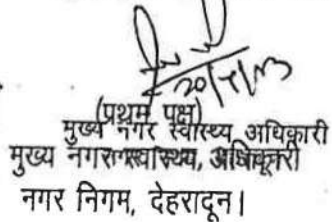 (प्रथम पक्ष)
मुख्य नगर स्वास्थ्य अधिकारी
मुख्य नगर स्वास्थ्य, अधिकारी
नगर निगम, देहरादून।